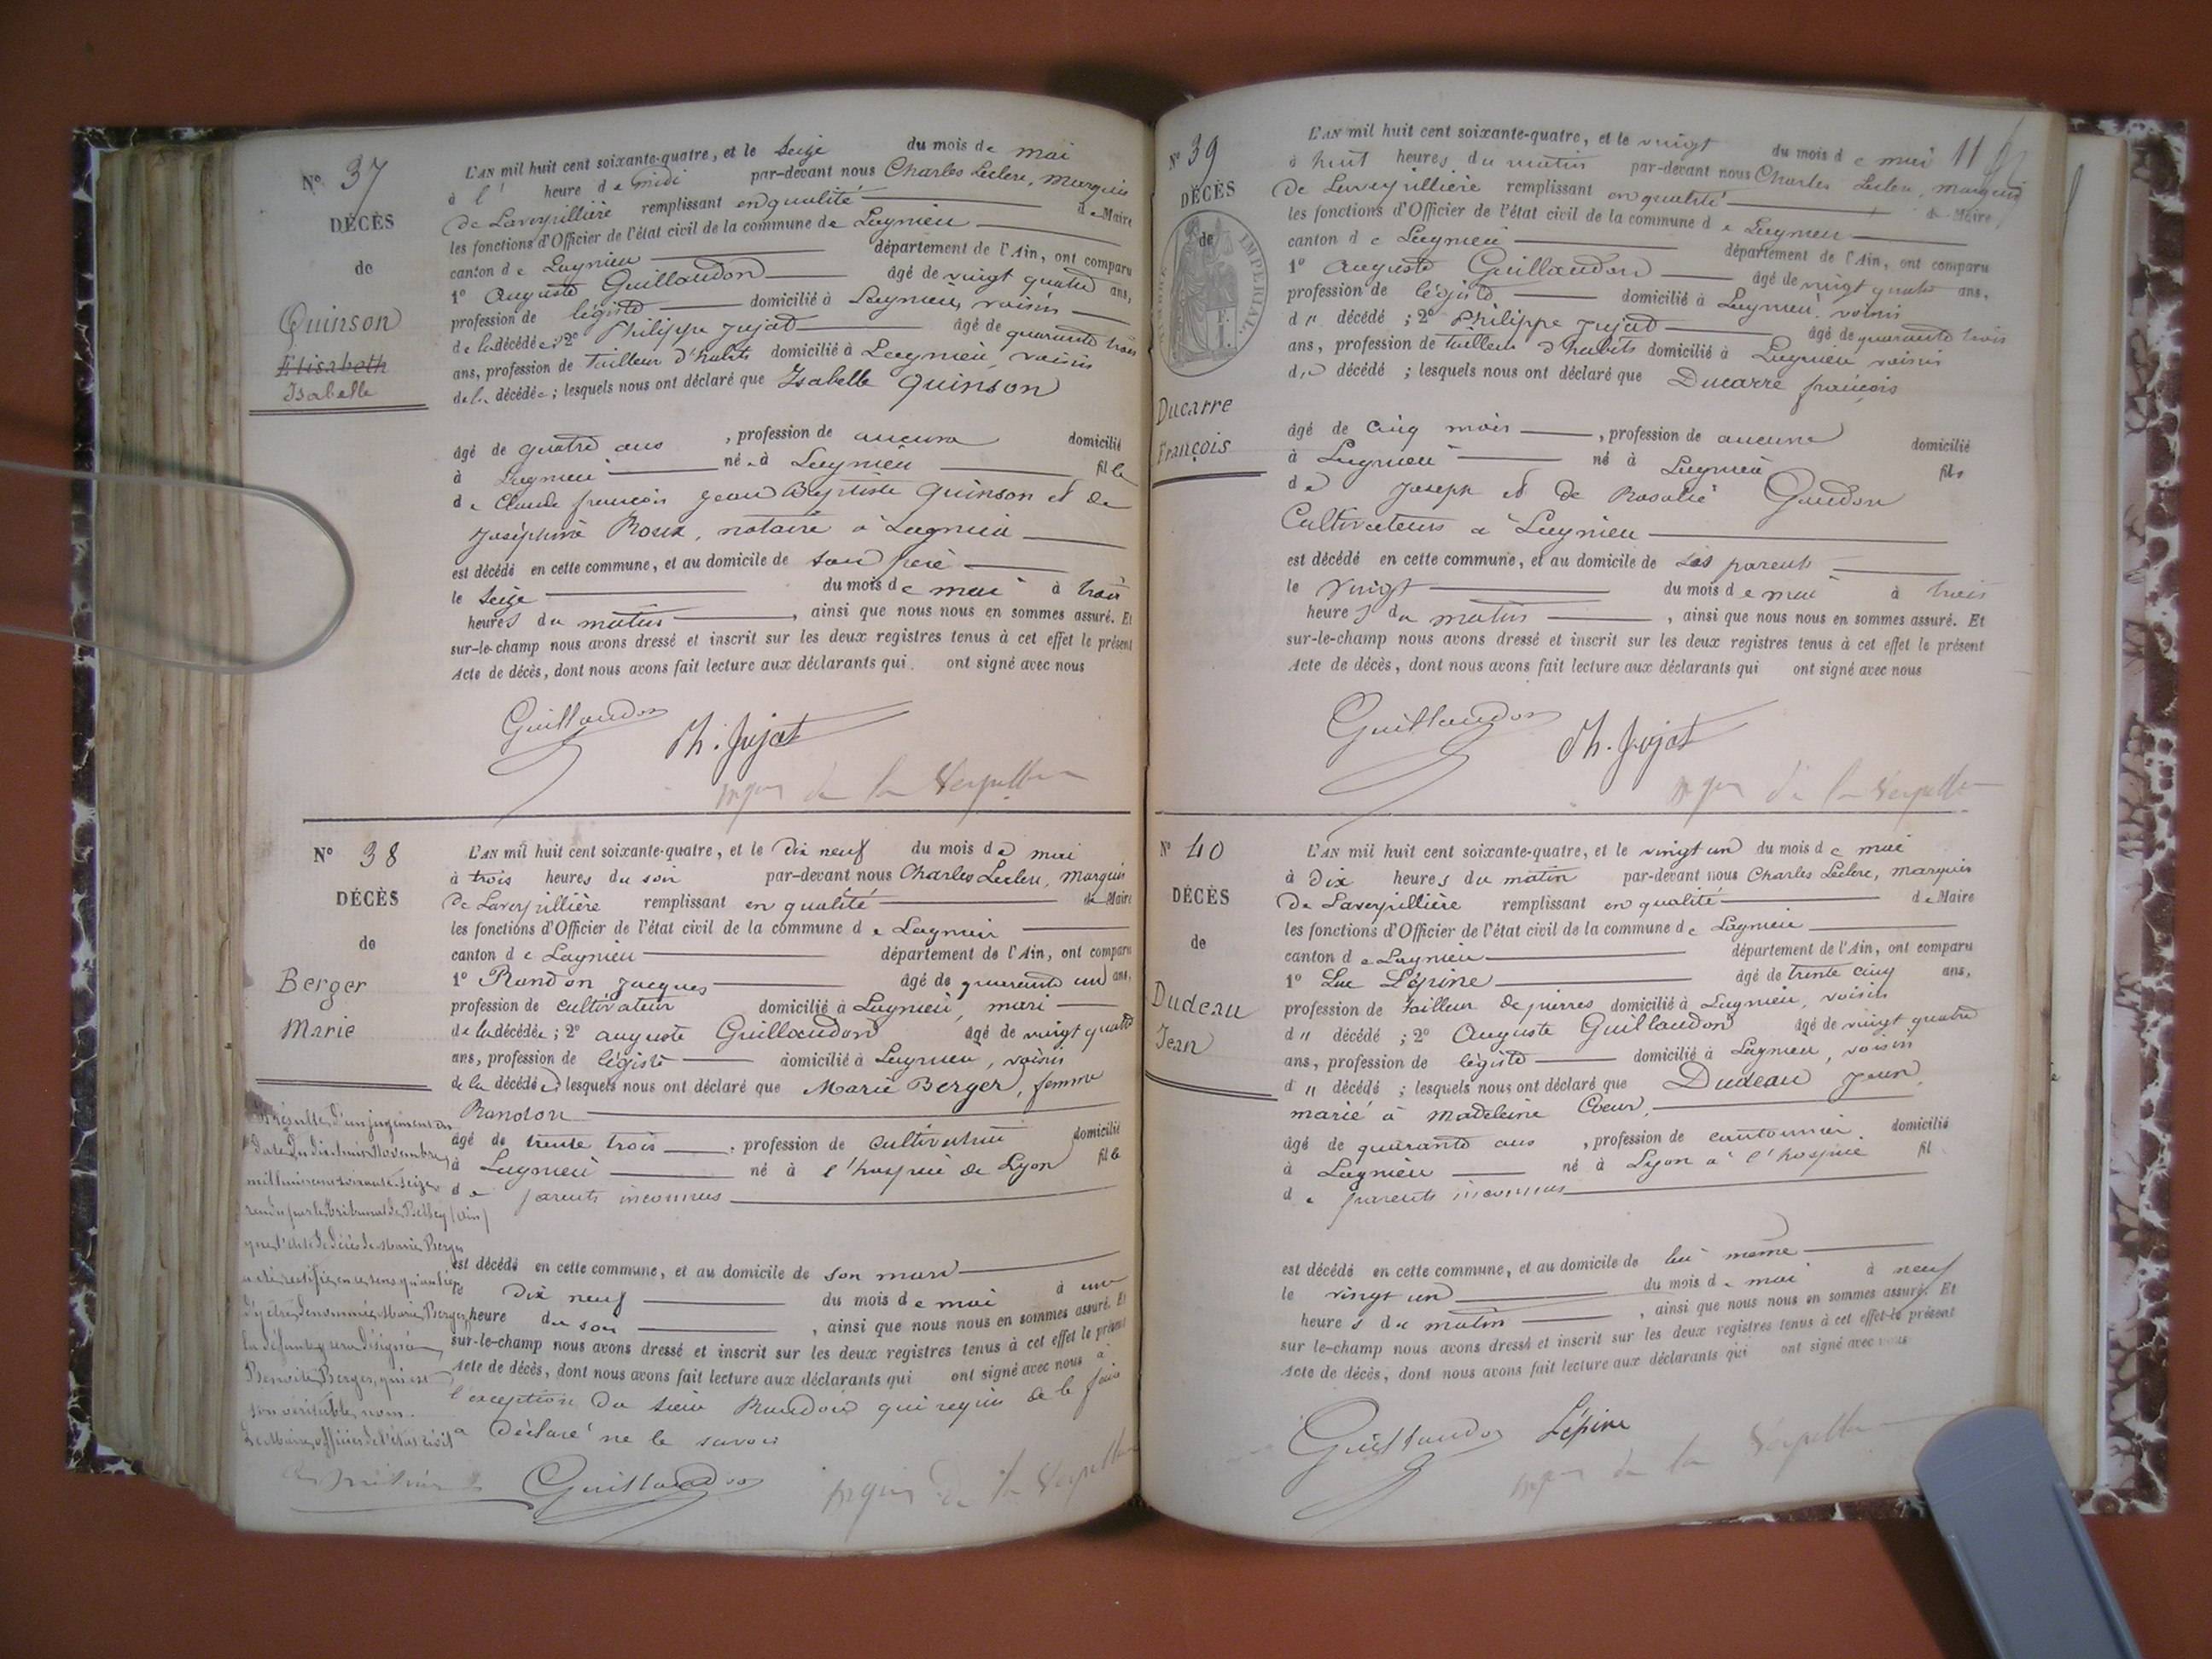 N° 37
DÉCÈS
de
Quinson
Elisabeth
Isabelle
L'AN mil huit cent soixante-quatre, et le seize du mois de mai
à l' heure de midi par-devant nous Charles Leclerc, Marquis
de Laverpillière remplissant en qualité de Maire
les fonctions d'Officier de l'état civil de la commune de Lagnieu
canton de Lagnieu département de l'Ain, ont comparu
1° Auguste Guillaudon âgé de vingt quatre ans,
profession de légiste domicilié à Lagnieu, voisin
de la décédée; 2° Philippe Jujat âgé de quarante trois
ans, profession de tailleur d'habits domicilié à Lagnieu, voisin
de la décédée; lesquels nous ont déclaré que Isabelle Quinson
âgé de quatre ans, profession de aucune domicilié
à Lagnieu née à Lagnieu fille
de Claude françois Jean Baptiste Quinson et de
Joséphine Roux, notaire à Lagnieu
est décédé en cette commune, et au domicile de son père
le seize du mois de mai à trois
heures du matin, ainsi que nous nous en sommes assuré. Et
sur-le-champ nous avons dressé et inscrit sur les deux registres tenus à cet effet le présent
Acte de décès, dont nous avons fait lecture aux déclarants qui ont signé avec nous
Guillaudon Ph. Jujat
mquis de la Verpillière
N° 38
DÉCÈS
de
Berger
Marie
L'AN mil huit cent soixante-quatre, et le dix neuf du mois de mai
à trois heures du soir par-devant nous Charles Leclerc, Marquis
de Laverpillière remplissant en qualité de Maire
les fonctions d'Officier de l'état civil de la commune de Lagnieu
canton de Lagnieu département de l'Ain, ont comparu
1° Randon Jacques âgé de quarante un ans,
profession de cultivateur domicilié à Lagnieu, mari
de la décédée; 2° auguste Guillaudon âgé de vingt quatre
ans, profession de légiste domicilié à Lagnieu, voisin
de la décédée lesquels nous ont déclaré que Marie Berger, femme
Randon
âgé de trente trois, profession de cultivatrice domicilié
à Lagnieu né à l'hospice de Lyon fille
de parents inconnus
est décédé en cette commune, et au domicile de son mari
le dix neuf du mois de mai à une
heure du soir, ainsi que nous nous en sommes assuré. Et
sur-le-champ nous avons dressé et inscrit sur les deux registres tenus à cet effet le présent
Acte de décès, dont nous avons fait lecture aux déclarants qui ont signé avec nous à
l'exception du sieur Randon qui requis de le faire
a déclaré ne le savoir
Guillaudon mquis de la Verpillière
Il résulte d'un jugement en
date du dix huit Novembre
mil huit cent soixante-seize
rendu par le tribunal de Belley (Ain)
que l'acte de décès de Marie Berger
a été rectifié en ce sens qu'au lieu
d'y être dénommée Marie Berger,
la défunte y sera désignée
Benoîte Berger, qui est
son véritable nom.
Le Maire, officier de l'état civil
N° 39
DÉCÈS
de
TIMBRE IMPERIAL
Ducarre
François
L'AN mil huit cent soixante-quatre, et le vingt du mois de mai 11
à huit heures du matin par-devant nous Charles Leclerc, marquis
de Laverpillière remplissant en qualité de Maire
les fonctions d'Officier de l'état civil de la commune de Lagnieu
canton de Lagnieu département de l'Ain, ont comparu
1° Auguste Guillaudon âgé de vingt quatre ans,
profession de légiste domicilié à Lagnieu, voisin
d" décédé; 2° Philippe Jujat âgé de quarante trois
ans, profession de tailleur d'habits domicilié à Lagnieu voisin
du décédé; lesquels nous ont déclaré que Ducarre françois
âgé de cinq mois, profession de aucune domicilié
à Lagnieu né à Lagnieu fils
de Joseph et de Rosalie Gaudon
Cultivateurs à Lagnieu
est décédé en cette commune, et au domicile de ses parents
le vingt du mois de mai à trois
heures du matin, ainsi que nous nous en sommes assuré. Et
sur-le-champ nous avons dressé et inscrit sur les deux registres tenus à cet effet le présent
Acte de décès, dont nous avons fait lecture aux déclarants qui ont signé avec nous
Guillaudon Ph. Jujat
mquis de la Verpillière
N° 40
DÉCÈS
de
Dudeau
Jean
L'AN mil huit cent soixante-quatre, et le vingt un du mois de mai
à dix heures du matin par-devant nous Charles Leclerc, marquis
de Laverpillière remplissant en qualité de Maire
les fonctions d'Officier de l'état civil de la commune de Lagnieu
canton de Lagnieu département de l'Ain, ont comparu
1° Luc Lépine âgé de trente cinq ans,
profession de tailleur de pierres domicilié à Lagnieu, voisin
d" décédé; 2° Auguste Guillaudon âgé de vingt quatre
ans, profession de légiste domicilié à Lagnieu, voisin
d" décédé; lesquels nous ont déclaré que Dudeau Jean,
marié à Madeleine Coeur,
âgé de quarante ans, profession de cantonnier domicilié
à Lagnieu né à Lyon à l'hospice fil
de parents inconnus
est décédé en cette commune, et au domicile de lui même
le vingt un du mois de mai à neuf
heures du matin, ainsi que nous nous en sommes assuré. Et
sur le-champ nous avons dressé et inscrit sur les deux registres tenus à cet effet le présent
Acte de décès, dont nous avons fait lecture aux déclarants qui ont signé avec nous
Guillaudon Lépine
mquis de la Verpillière